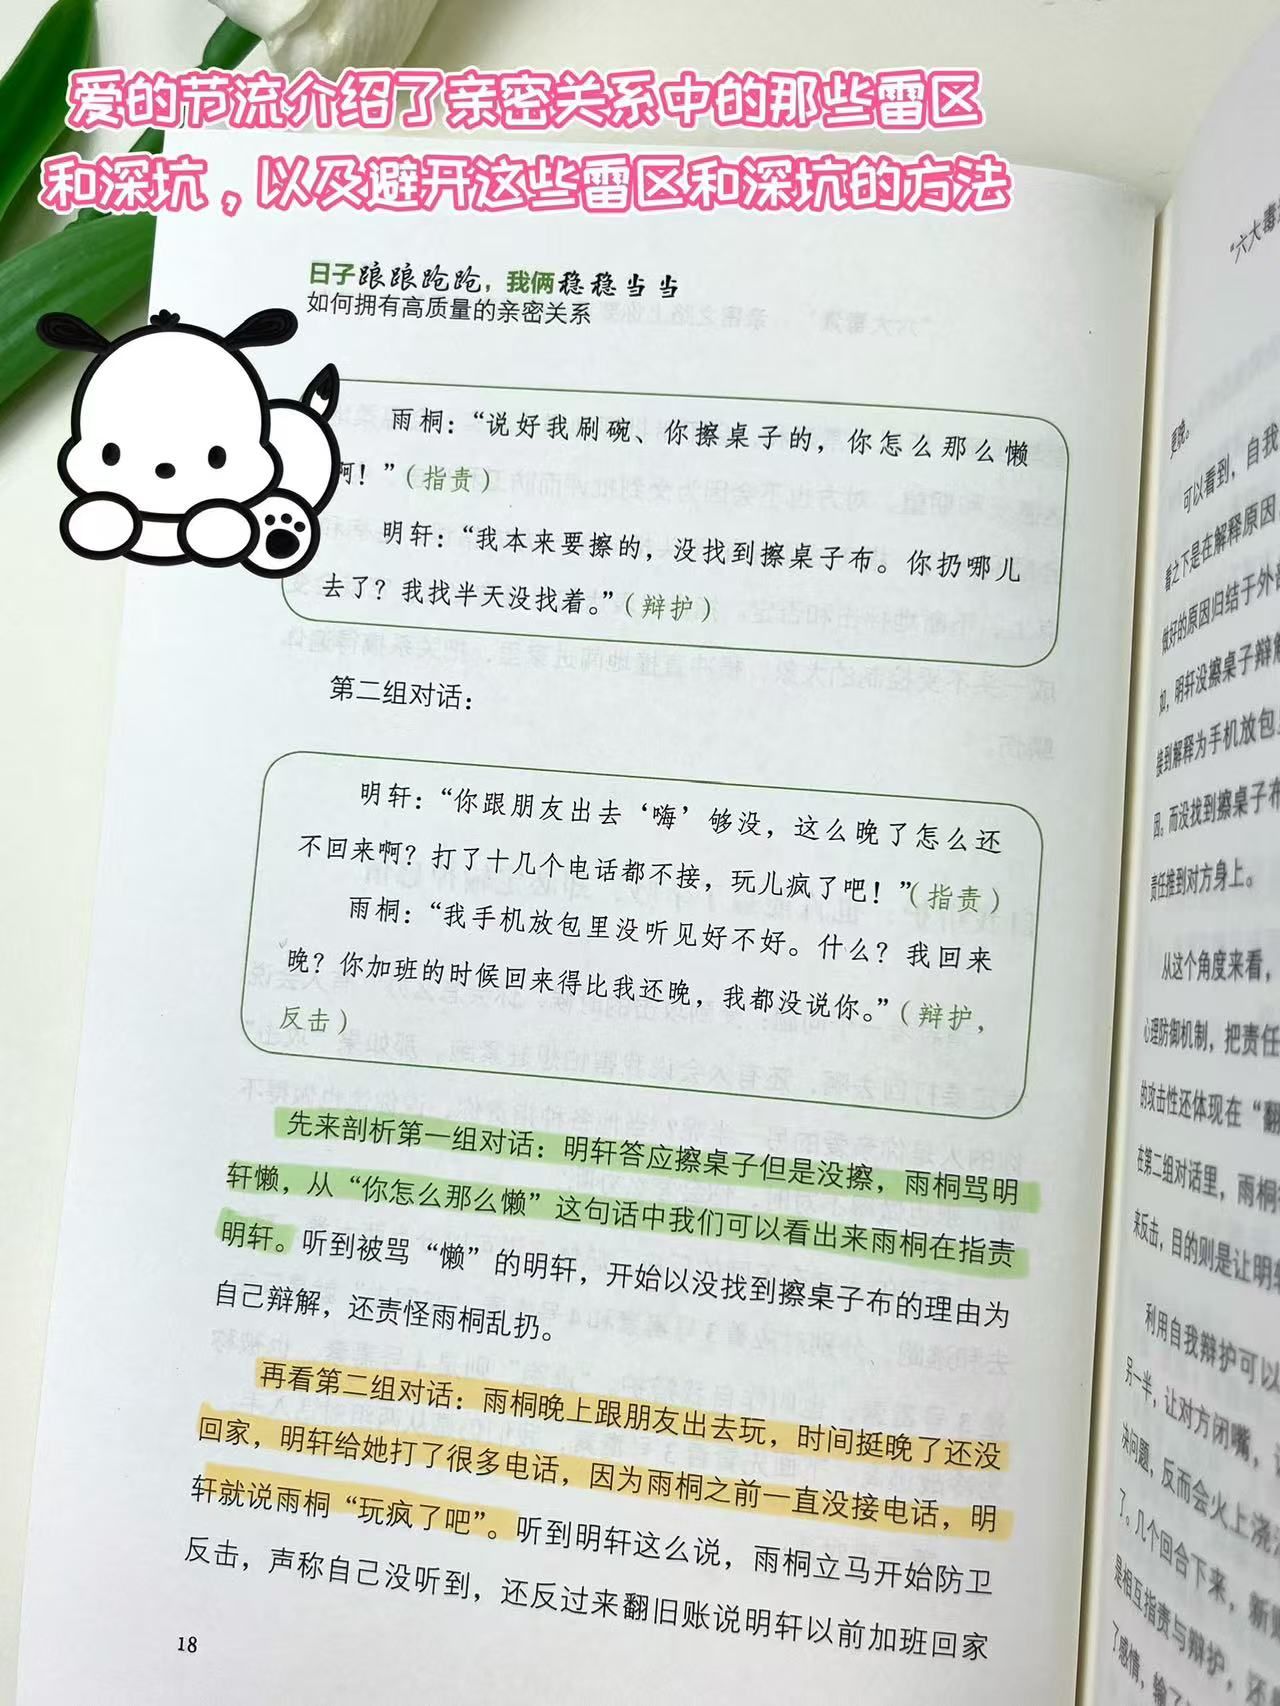 爱的节流介绍了亲密关系中的那些雷区
和深坑，以及避开这些雷区和深坑的方法
日子踉踉跄跄，我俩稳稳当当
如何拥有高质量的亲密关系
雨桐：“说好我刷碗、你擦桌子的，你怎么那么懒
啊！”（指责）
明轩：“我本来要擦的，没找到擦桌子布。你扔哪儿
去了？我找半天没找着。”（辩护）
第二组对话：
明轩：“你跟朋友出去‘嗨’够没，这么晚了怎么还
不回来啊？打了十几个电话都不接，玩儿疯了吧！”（指责）
雨桐：“我手机放包里没听见好不好。什么？我回来
晚？你加班的时候回来得比我还晚，我都没说你。”（辩护，
反击）
先来剖析第一组对话：明轩答应擦桌子但是没擦，雨桐骂明
轩懒，从“你怎么那么懒”这句话中我们可以看出来雨桐在指责
明轩。听到被骂“懒”的明轩，开始以没找到擦桌子布的理由为
自己辩解，还责怪雨桐乱扔。
再看第二组对话：雨桐晚上跟朋友出去玩，时间挺晚了还没
回家，明轩给她打了很多电话，因为雨桐之前一直没接电话，明
轩就说雨桐“玩疯了吧”。听到明轩这么说，雨桐立马开始防卫
反击，声称自己没听到，还反过来翻旧账说明轩以前加班回家
18
“六大毒
更晚。
可以看到，自我
看之下是在解释原因
做好的原因归结于外
如，明轩没擦桌子辩
接到解释为手机放包
因。而没找到擦桌子布
责任推到对方身上。
从这个角度来看，
心理防御机制，把责任
的攻击性还体现在“翻
在第二组对话里，雨桐
来反击，目的则是让明
利用自我辩护可以
另一半，让对方闭嘴，
决问题，反而会火上浇
了。几个回合下来，新
是相互指责与辩护，还
了感情，输了